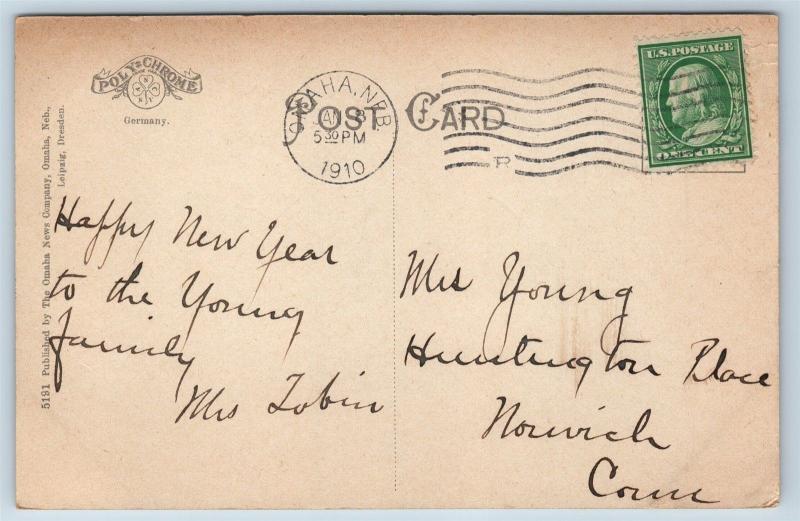 POLY-CHROME
Germany.
5191 Published by The Omaha News Company, Omaha, Neb.,
Leipzig, Dresden.
POST CARD
OMAHA, NEB.
JAN 3
5 30 PM
1910
R
U.S. POSTAGE
ONE CENT
Happy New Year
to the Young
family
Mrs Tobin
Mrs Young
Huntington Place
Norwich
Conn